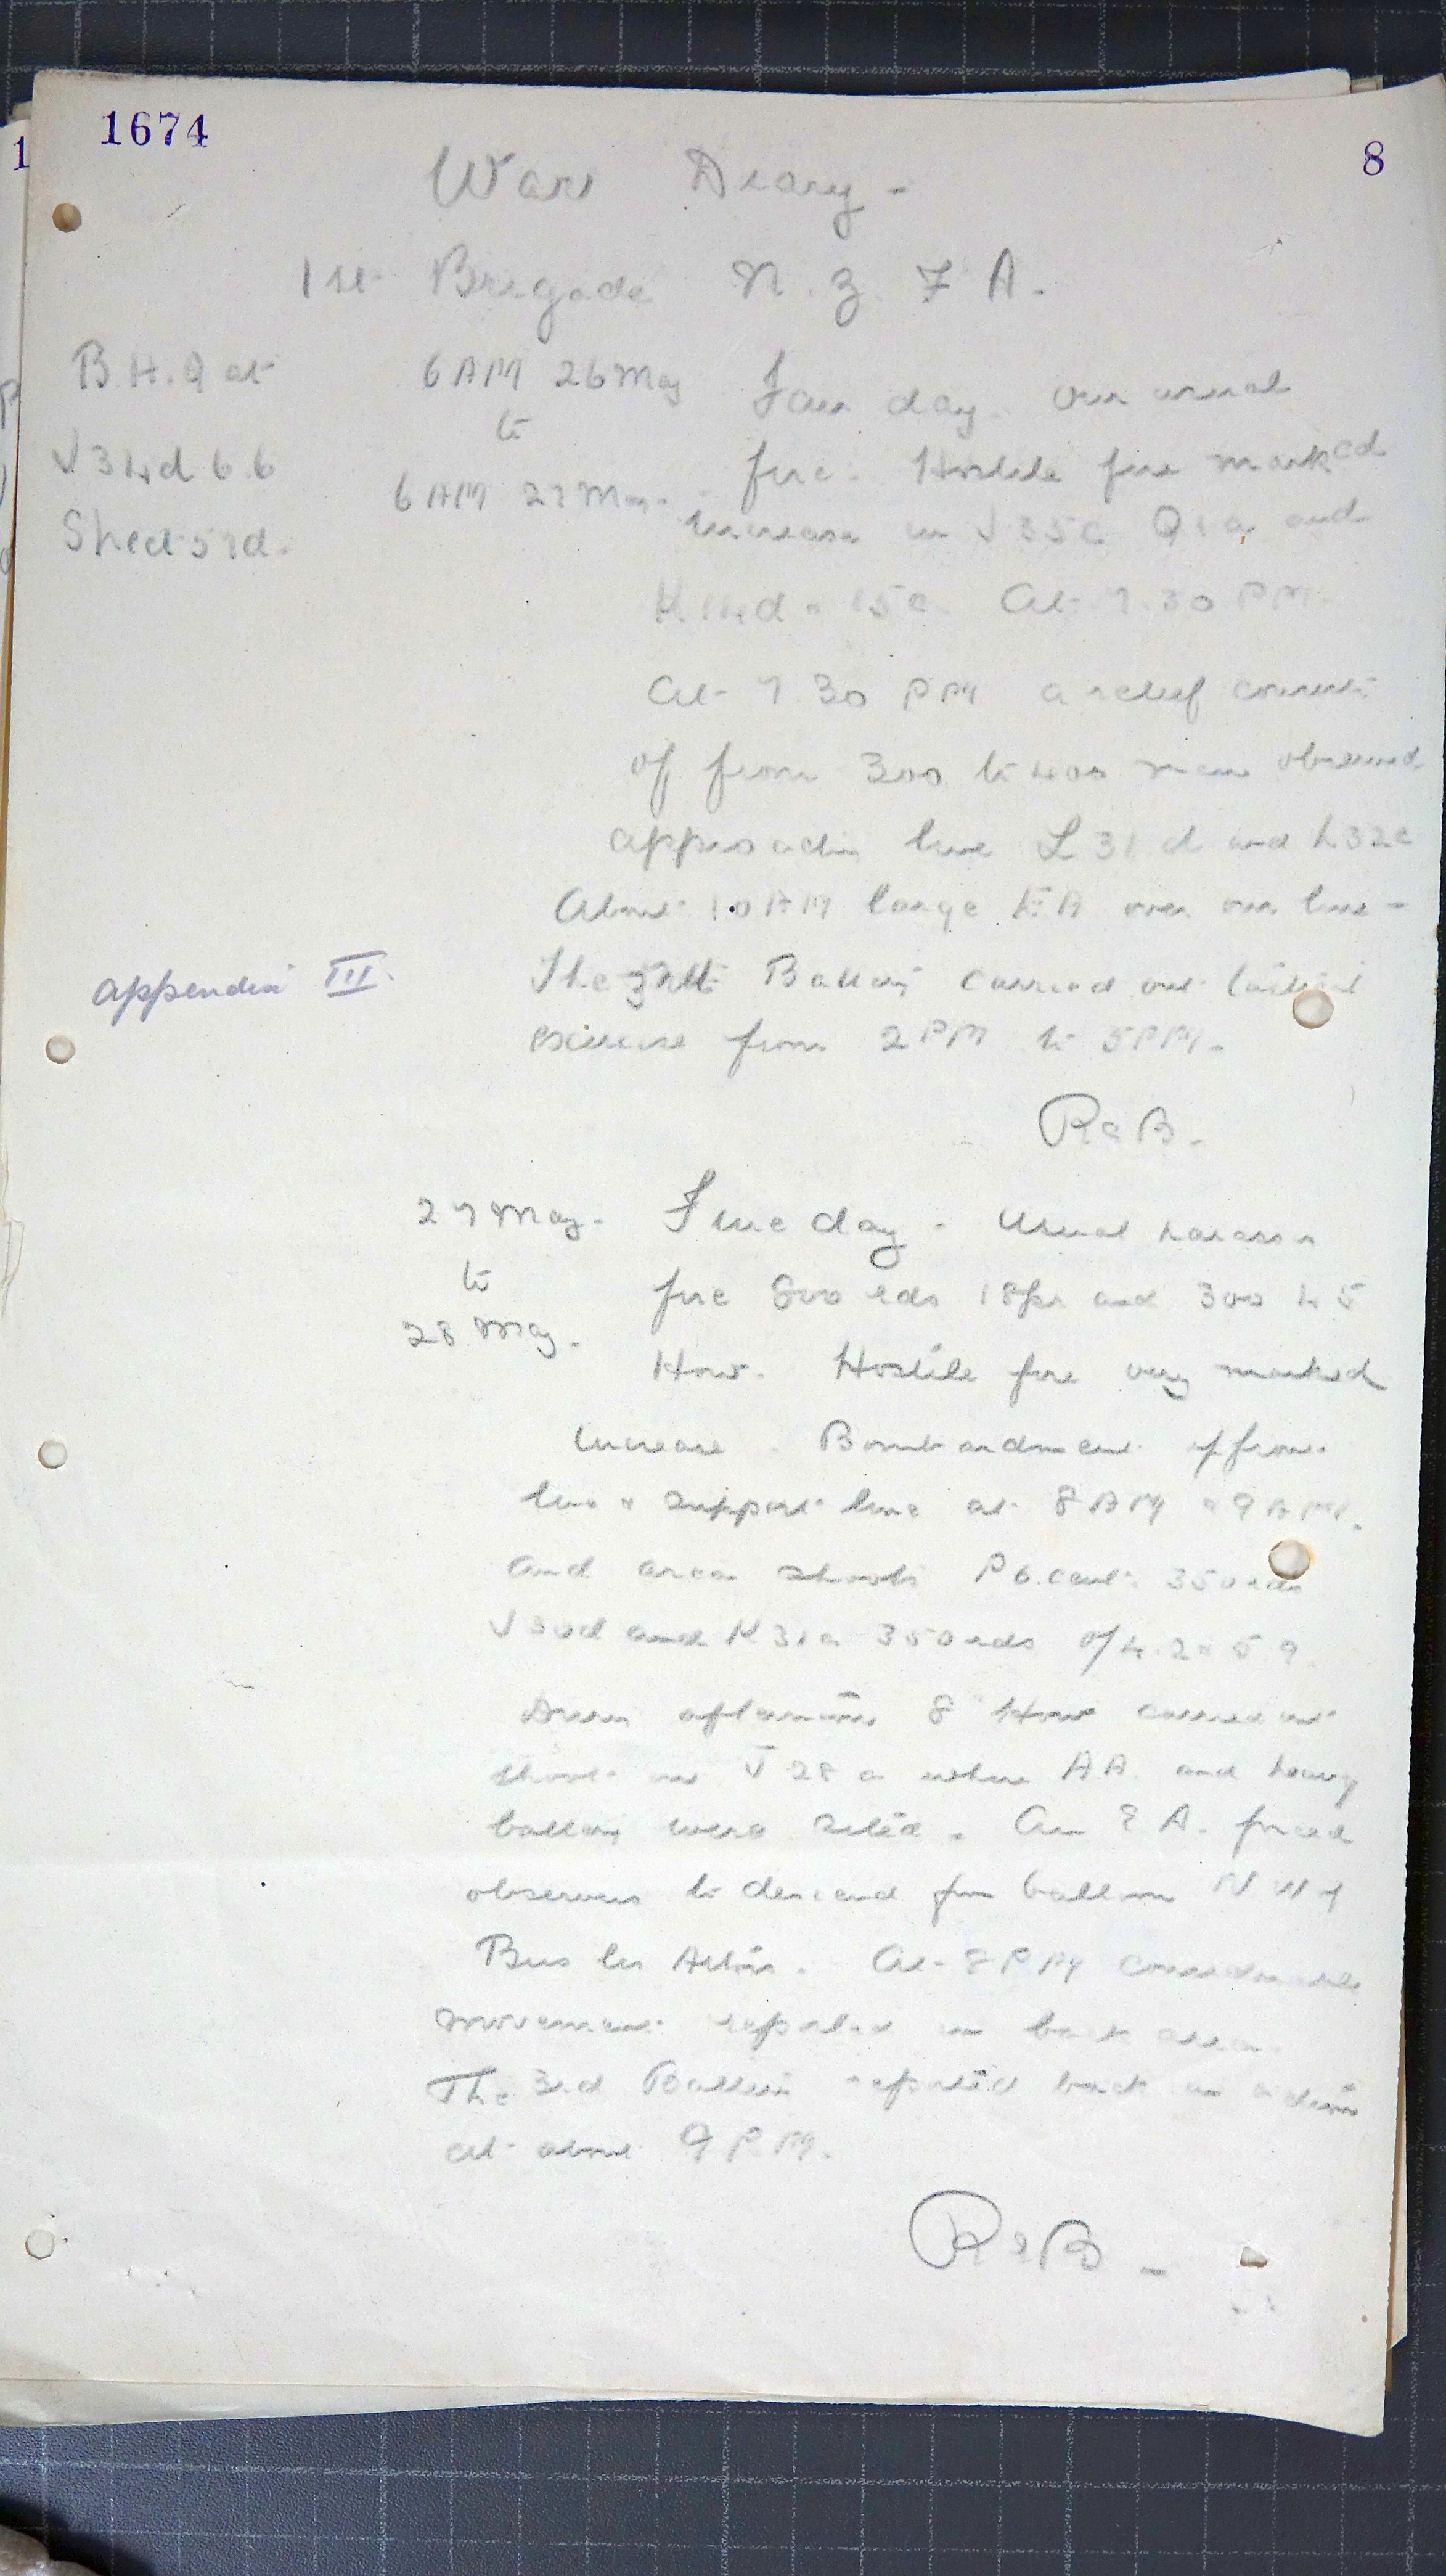 1674
8
War Diary -
1st Brigade N. Z. F A.
B.H.Q at
J34d 6.6
Sheet 57d.
6 AM 26 May
to
6 AM 27 May.
Fair day. Our usual
fire. Hostile fire marked
increase in J35c Q1a and
K14d & 15c At 7.30 PM.
At 7 30 PM a relief
of from 300 to 400 men observed
approaching line L31d and L32c
About 10 AM large E.A over our line -
appendix III.
The Battery carried out tactical
exercise from 2 PM to 5 PM.
RSB.
27 May.
to
28 May.
Fine day. Usual harass
fire 800 rds 18pr and 300 4 5
How. Hostile fire very marked
increase. Bombardment of front
line & support line at 8 AM & 9 AM.
and area shoots P6. 350 rds
J30d and K31a 350 rds of 4.2 & 5.9.
afternoon 8" How carried out
shoot on J28a where AA. and heavy
battery were sited. An E A. forced
observers to descend from balloon N W of
Bus les Artois. At 8 PM considerable
movement reported in back area.
The 3rd Battery reported back in action
at about 9 PM.
RSB -